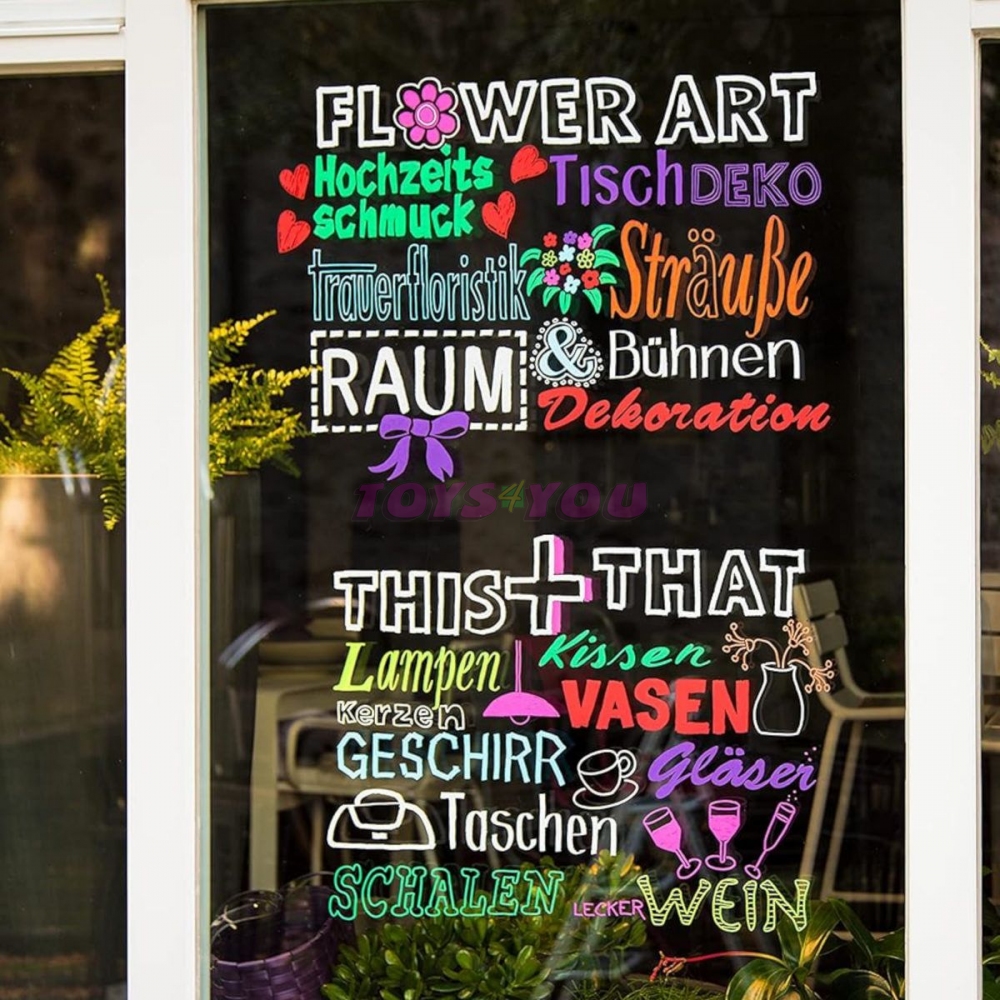 FLOWER ART
Hochzeits
schmuck
TischDEKO
trauerfloristik
Sträuße
RAUM & Bühnen
Dekoration
TOYS4YOU
THIS + THAT
Lampen
Kissen
Kerzen
VASEN
GESCHIRR
Gläser
Taschen
SCHALEN
LECKER WEIN